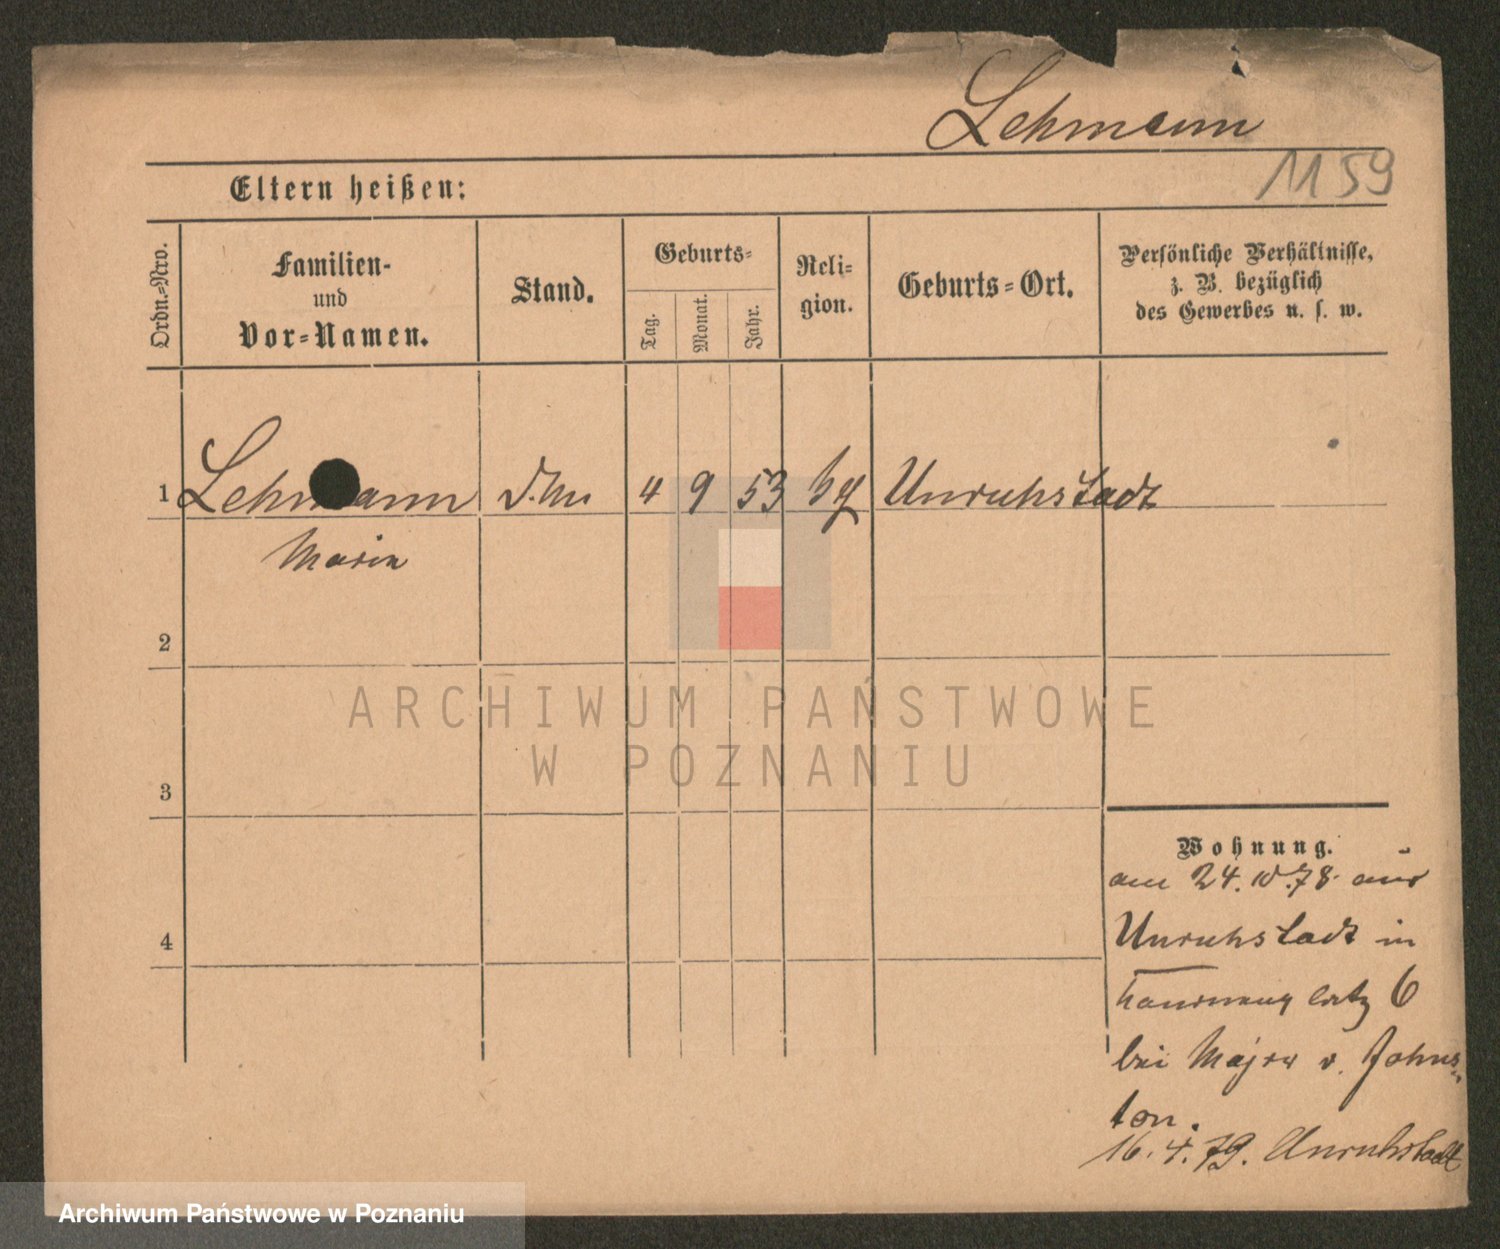 Lehmann
1159
Eltern heißen:
Ordn.-Nro.
Familien-
und
Vor-Namen.
Stand.
Geburts-
Tag.
Monat.
Jahr.
Reli-
gion.
Geburts-Ort.
Persönliche Verhältnisse,
z. B. bezüglich
des Gewerbes u. s. w.
1 Lehmann 4 9 53 Unruhstadt
Marie
2
3
4
Wohnung.
am 24.10.78 aus
Unruhstadt in
6
bei Major v. Johns-
ton.
16.4.79. Unruhstadt
ARCHIWUM PAŃSTWOWE
W POZNANIU
Archiwum Państwowe w Poznaniu